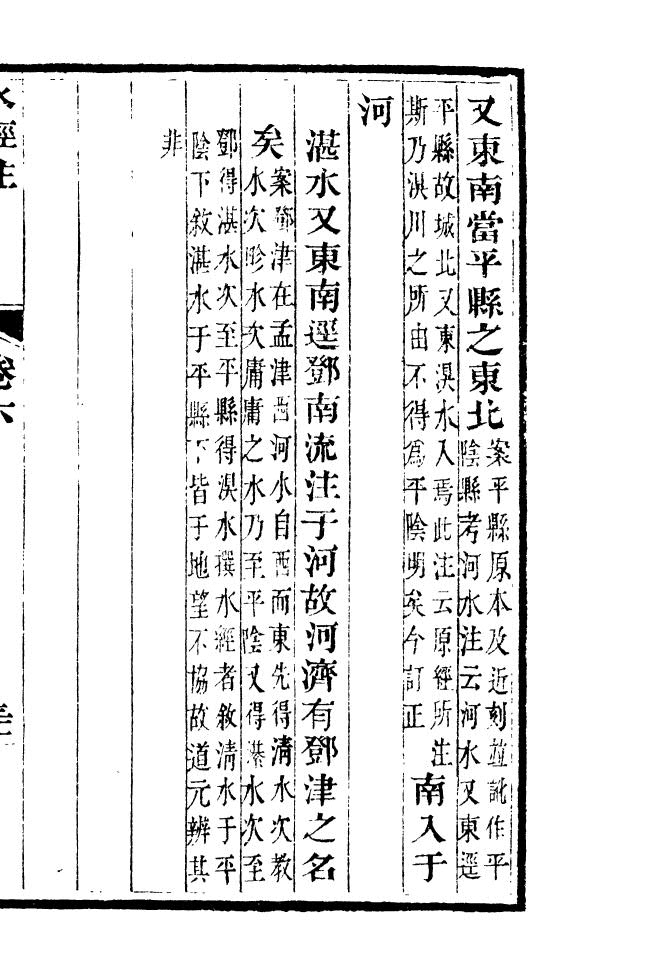 又東南當平縣之東北
案平縣原本及近刻並訛作平
陰縣考河水注云河水又東逕
平縣故城北又東淏水入焉此注云原經所注
斯乃淏川之所由不得爲平陰明矣今訂正
南入于
河
湛水又東南逕鄧南流注于河故河濟有鄧津之名
矣
案鄧津在孟津西河水自西而東先得清水次教
水次畛水次庸庸之水乃至平陰又得湛水次至
鄧得湛水次至平縣得淏水撰水經者敘清水于平
陰下敘湛水于平縣下皆于地望不協故道元辨其
非
水經注
卷六